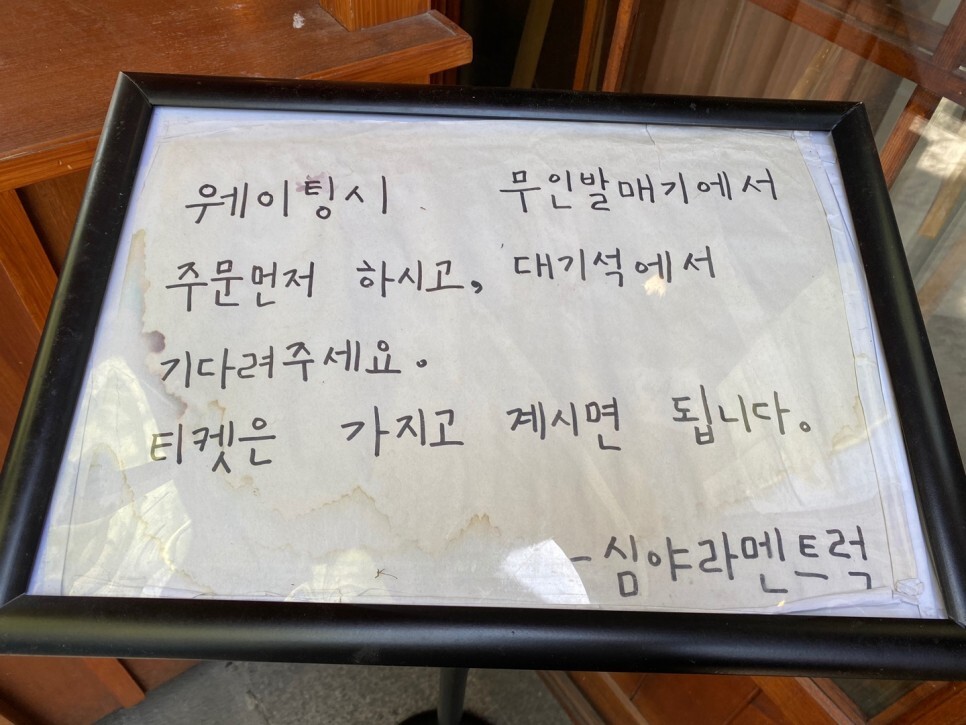 웨이팅시 무인발매기에서
주문먼저 하시고, 대기석에서
기다려주세요.
티켓은 가지고 계시면 됩니다.
-심야라멘트럭